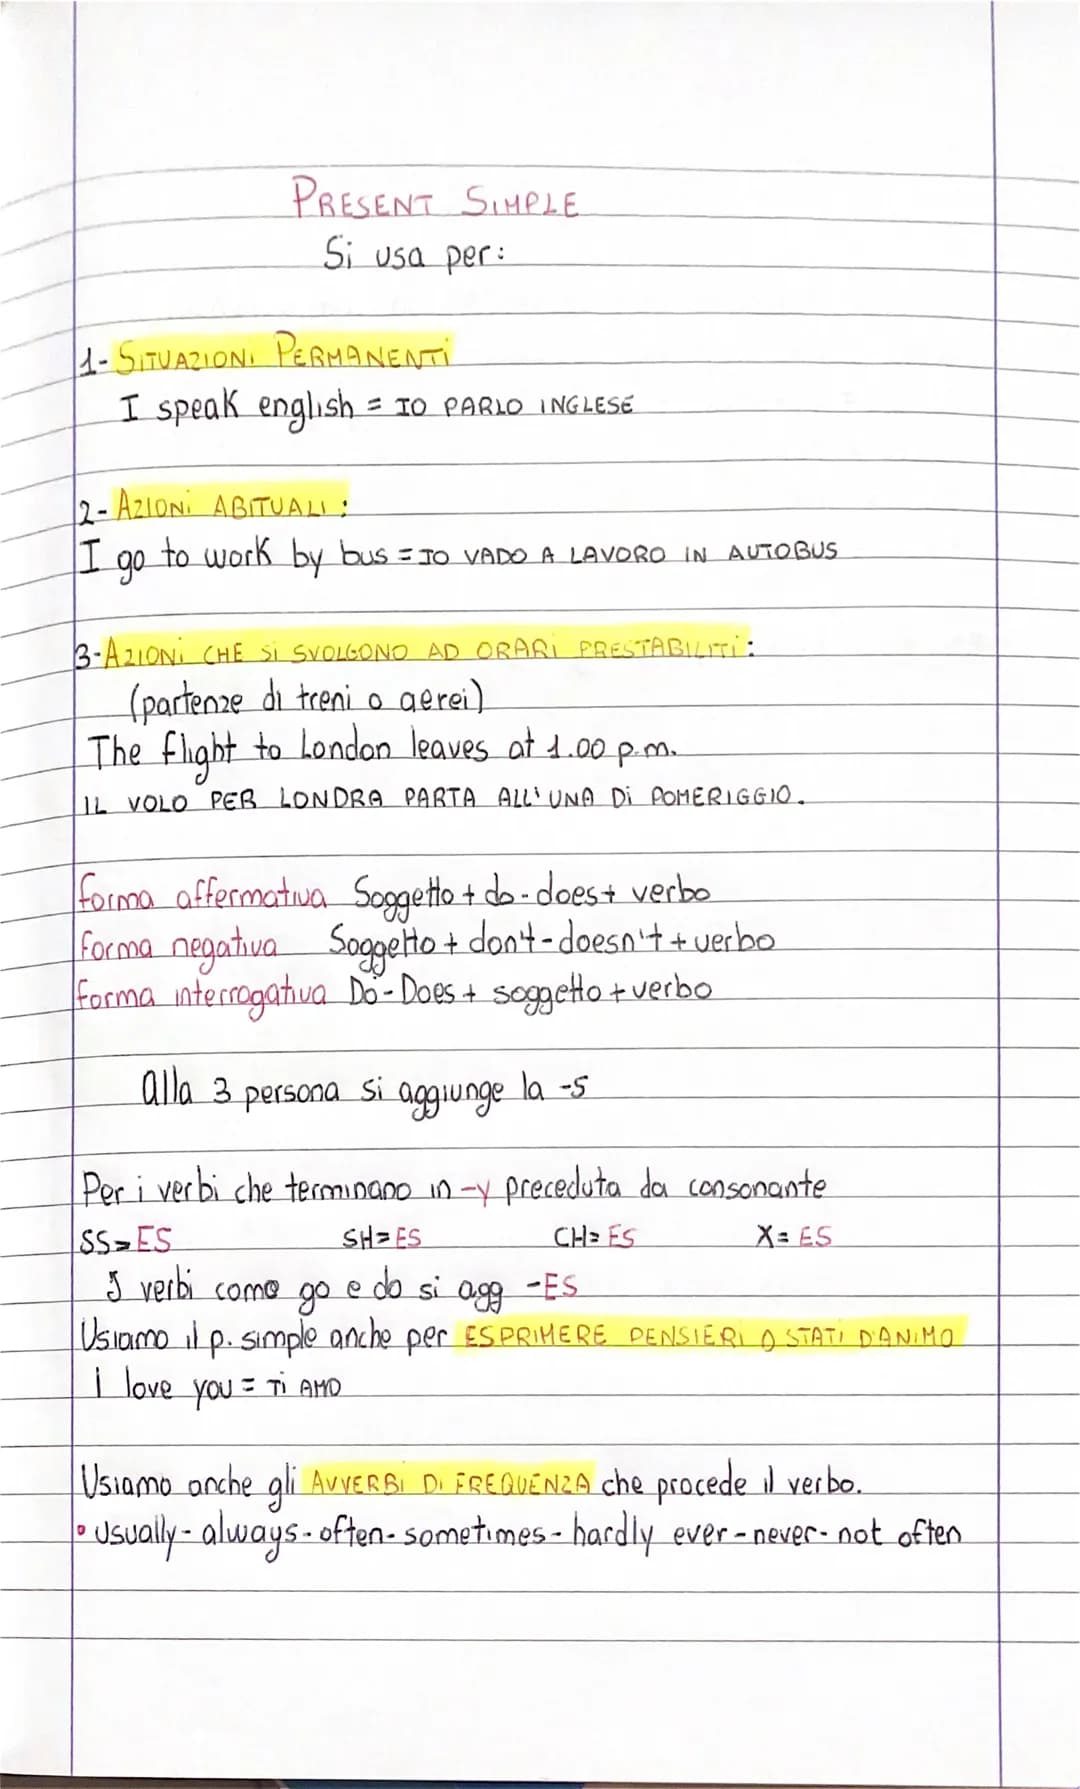 PRESENT SIMPLE
Si usa per:
1- SITUAZIONI PERMANENTI
I speak english = IO PARLO INGLESE
2- AZIONI ABITUALI:
I go to work by bus = IO VADO A LAVORO IN AUTOBUS
3- AZIONI CHE SI SVOLGONO AD ORARI PRESTABILITI:
(partenze di treni o aerei)
The flight to London leaves at 1.00 p.m.
IL VOLO PER LONDRA PARTA ALL'UNA DI POMERIGGIO.
forma affermativa Soggetto + do - does + verbo
forma negativa Soggetto + don't - doesn't + verbo
forma interrogativa Do - Does + soggetto + verbo
alla 3 persona si aggiunge la -s
Per i verbi che terminano in -y preceduta da consonante
SS = ES SH = ES CH = ES X = ES
I verbi come go e do si agg -ES
Usiamo il p. simple anche per ESPRIMERE PENSIERI O STATI D'ANIMO
i love you = TI AMO
Usiamo anche gli AVVERBI DI FREQUENZA che procede il verbo.
• Usually - always - often - sometimes - hardly ever - never - not often